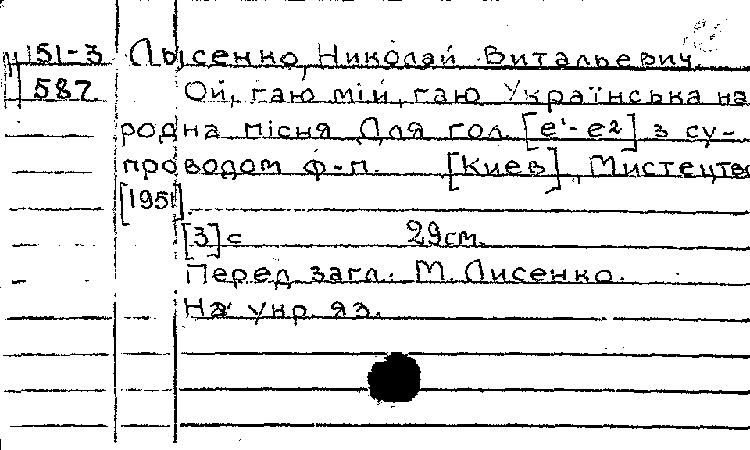 Ц 51-3 Лысенко, Николай Витальевич.
587 Ой, гаю мій, гаю Українська на
родна пісня Для гол. [e¹-e2] з су-
проводом ф-п. [Киев], Мистецтво
[1951].
[3] с 29см.
Перед загл.: М. Лисенко.
На укр яз.